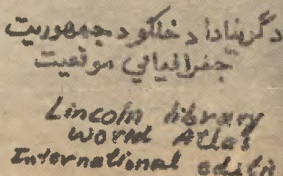 د گرینادا د خلکو د جمهوریت
جغرافیائي موقعیت
Lincoln library
World Atlas
International editi